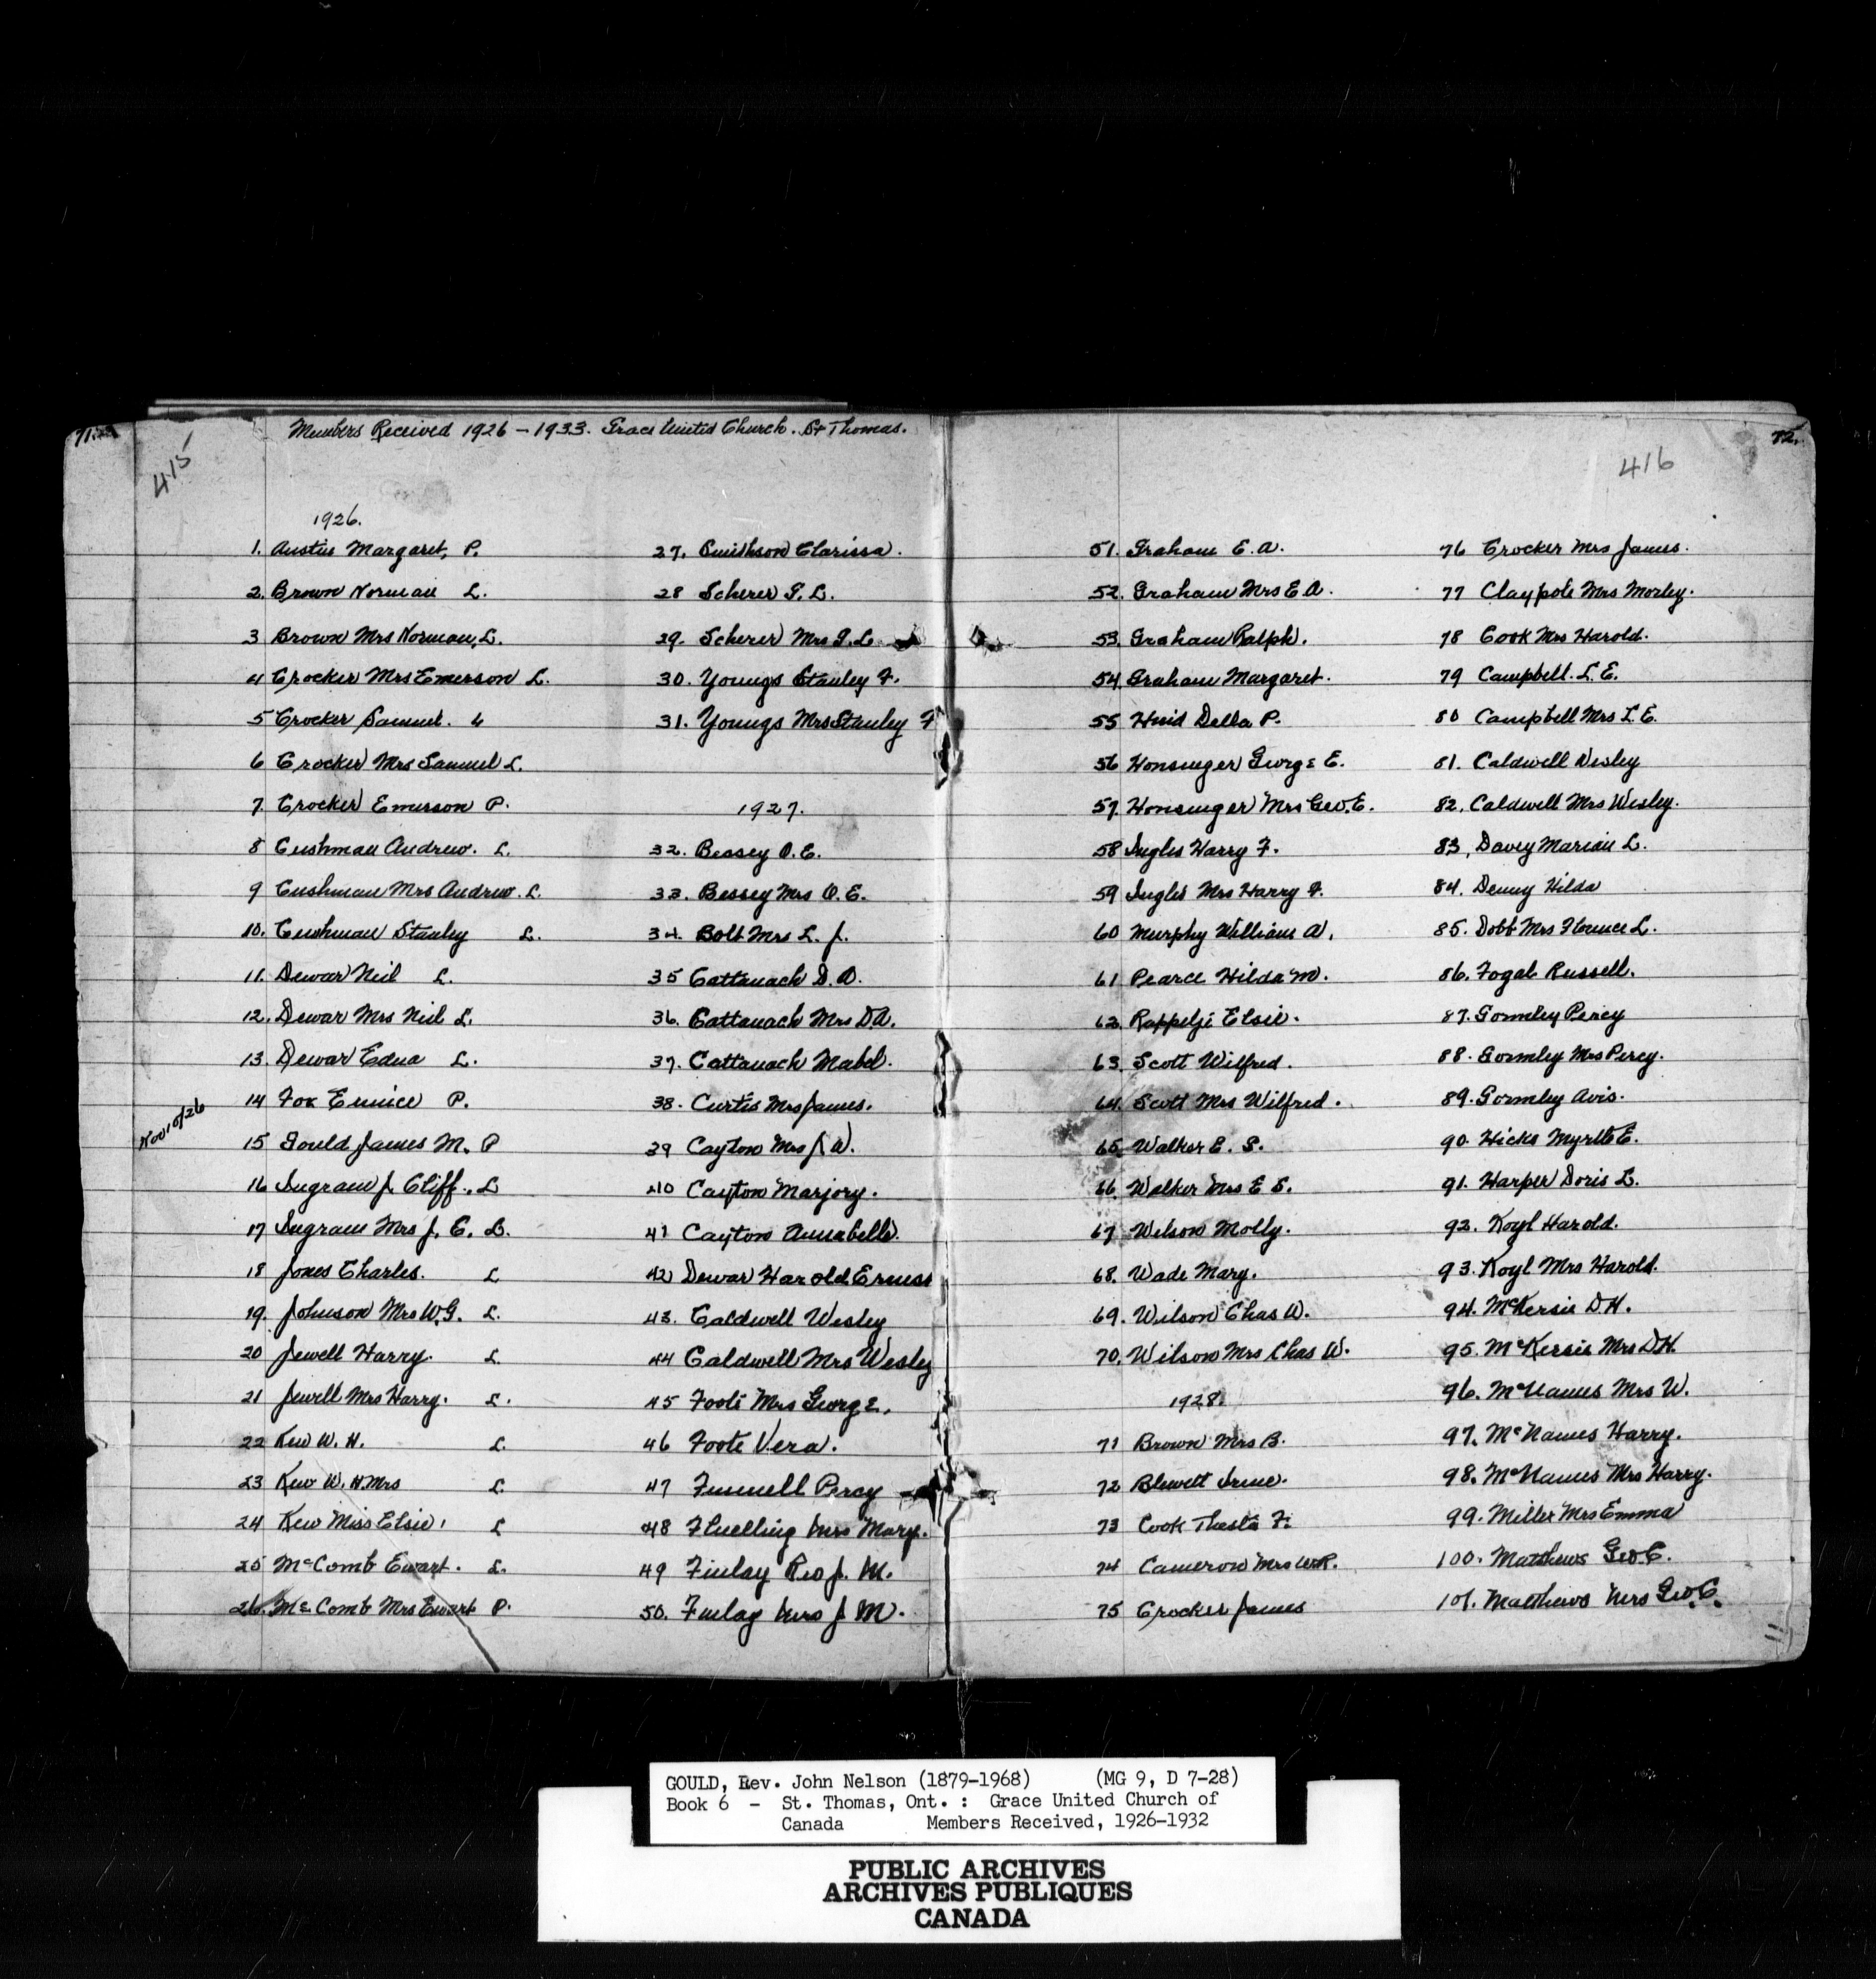 71.
Members Received 1926 – 1933. Grace United Church. St Thomas.
415
1926.
1. Austin Margaret, P.
2. Brown Norman L.
3 Brown Mrs Norman, L.
4 Crocker Mrs Emerson L.
5 Crocker Samuel. L
6 Crocker Mrs Samuel L.
7. Crocker Emerson P.
8 Cushman Andrew. L.
9 Cushman Mrs Andrew. L.
10. Cushman Stanley L.
11. Dewar Neil L.
12. Dewar Mrs Neil L.
13. Dewar Edna L.
14 Fox Eunice P.
Nov 10/26
15 Gould James M. P
16 Ingram J. Cliff. L
17 Ingram Mrs J. C. L.
18 Jones Charles. L
19. Johnson Mrs W.G. L.
20 Jewell Harry. L.
21 Jewell Mrs Harry. L.
22 Kew W. H. L.
23 Kew W. H. Mrs L.
24 Kew Miss Elsie, L
25 McComb Ewart. L.
26. McComb Mrs Ewart P.
27. Smithson Clarissa.
28 Scherer G. L.
29. Scherer Mrs G. L.
30. Youngs Stanley F.
31. Youngs Mrs Stanley F
1927.
32. Bessey O. E.
33. Bessey Mrs O. E.
34. Bolt Mrs L. J.
35 Cattanach D. A.
36. Cattanach Mrs D A.
37. Cattanach Mabel.
38. Curtis Mrs James.
39 Cayton Mrs J. W.
40 Cayton Marjory.
41 Cayton Annabelle.
42 Dewar Harold Ernest
43. Caldwell Wesley
44 Caldwell Mrs Wesley
45 Foote Mrs George.
46 Foote Vera.
47 Funnell Percy
48 Fluelling Mrs Mary.
49 Finlay Rev J. M.
50. Finlay Mrs J M.
72.
416
51. Graham E. A.
52. Graham Mrs E A.
53. Graham Ralph.
54. Graham Margaret.
55 Della P.
56 Honsinger George E.
57. Honsinger Mrs Geo. E.
58 Ingles Harry F.
59 Ingles Mrs Harry F.
60 Murphy William A.
61 Pearce Hilda M.
62. Rappelje Elsie.
63. Scott Wilfred.
64. Scott Mrs Wilfred.
65. Walker E. S.
66. Walker Mrs E S.
67 Wilson Molly.
68. Wade Mary.
69. Wilson Chas W.
70. Wilson Mrs Chas W.
1928.
71 Brown Mrs B.
72 Blewett Irene.
73 Cook F.
74 Cameron Mrs W.R.
75 Crocker James
76 Crocker Mrs James.
77 Claypole Mrs Morley.
78 Cook Mrs Harold.
79 Campbell. L. E.
80 Campbell Mrs L. E.
81. Caldwell Wesley
82. Caldwell Mrs Wesley.
83, Davey Marian L.
84. Denny Hilda
85. Dobb Mrs Florence L.
86. Fogal Russell.
87. Gormley Percy
88. Gormley Mrs Percy.
89. Gormley Avis.
90. Hicks Myrtle E.
91. Harper Doris L.
92. Koyl Harold.
93. Koyl Mrs Harold.
94. McKersie D. H.
95. McKersie Mrs D H.
96. McManus Mrs W.
97. McManus Harry.
98. McManus Mrs Harry.
99. Miller Mrs Emma
100. Matthews Geo C.
101. Matthews Mrs Geo. C.
GOULD, Rev. John Nelson (1879-1968) (MG 9, D 7-28)
Book 6 - St. Thomas, Ont. : Grace United Church of
Canada Members Received, 1926-1932
PUBLIC ARCHIVES
ARCHIVES PUBLIQUES
CANADA